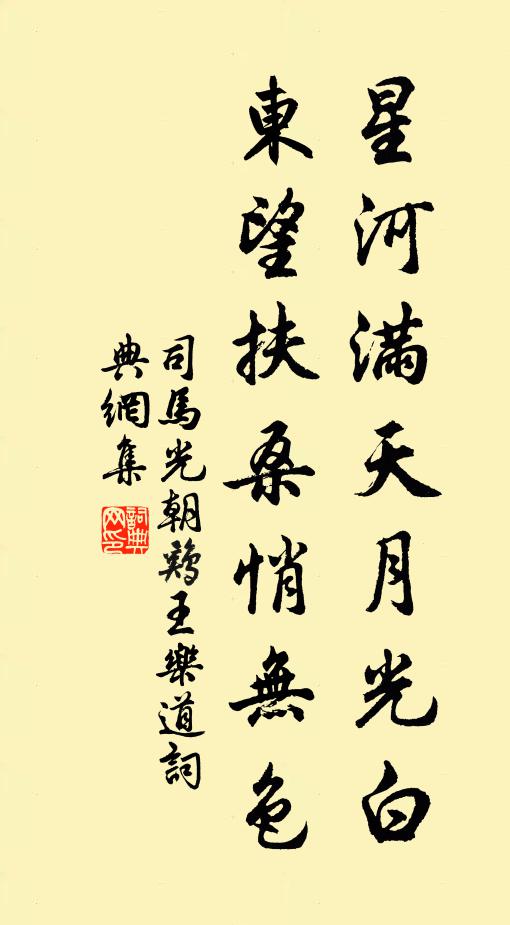 星河滿天月光白
東望扶桑悄無色
司馬光朝鷄王樂道詞
典網集
詞典网印